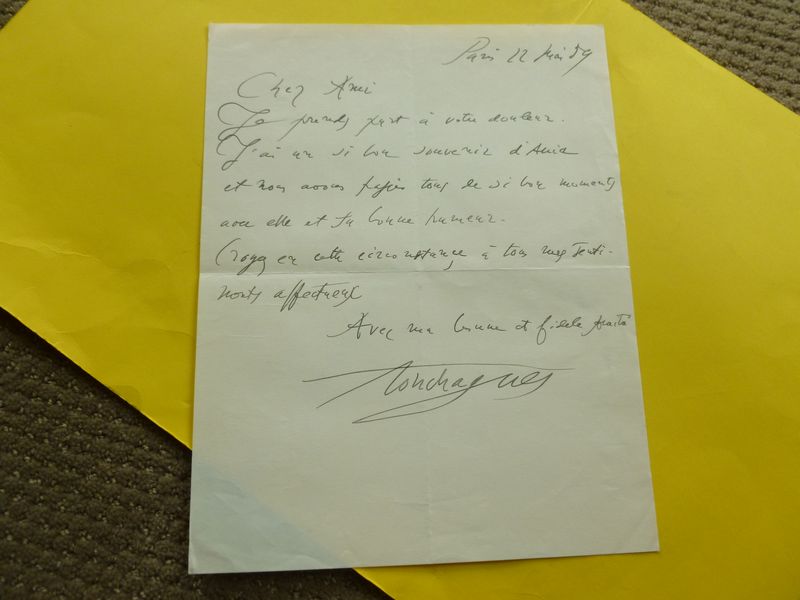 Paris 22 Mai 59
Cher Ami
Je prends part à votre douleur.
J'ai un si bon souvenir d'Ania
et nous avons passés tous de si bon moments
avec elle et sa bonne humeur.
Croyez en cette circonstance à tous mes senti-
ments affectueux
Avec ma bonne et fidele